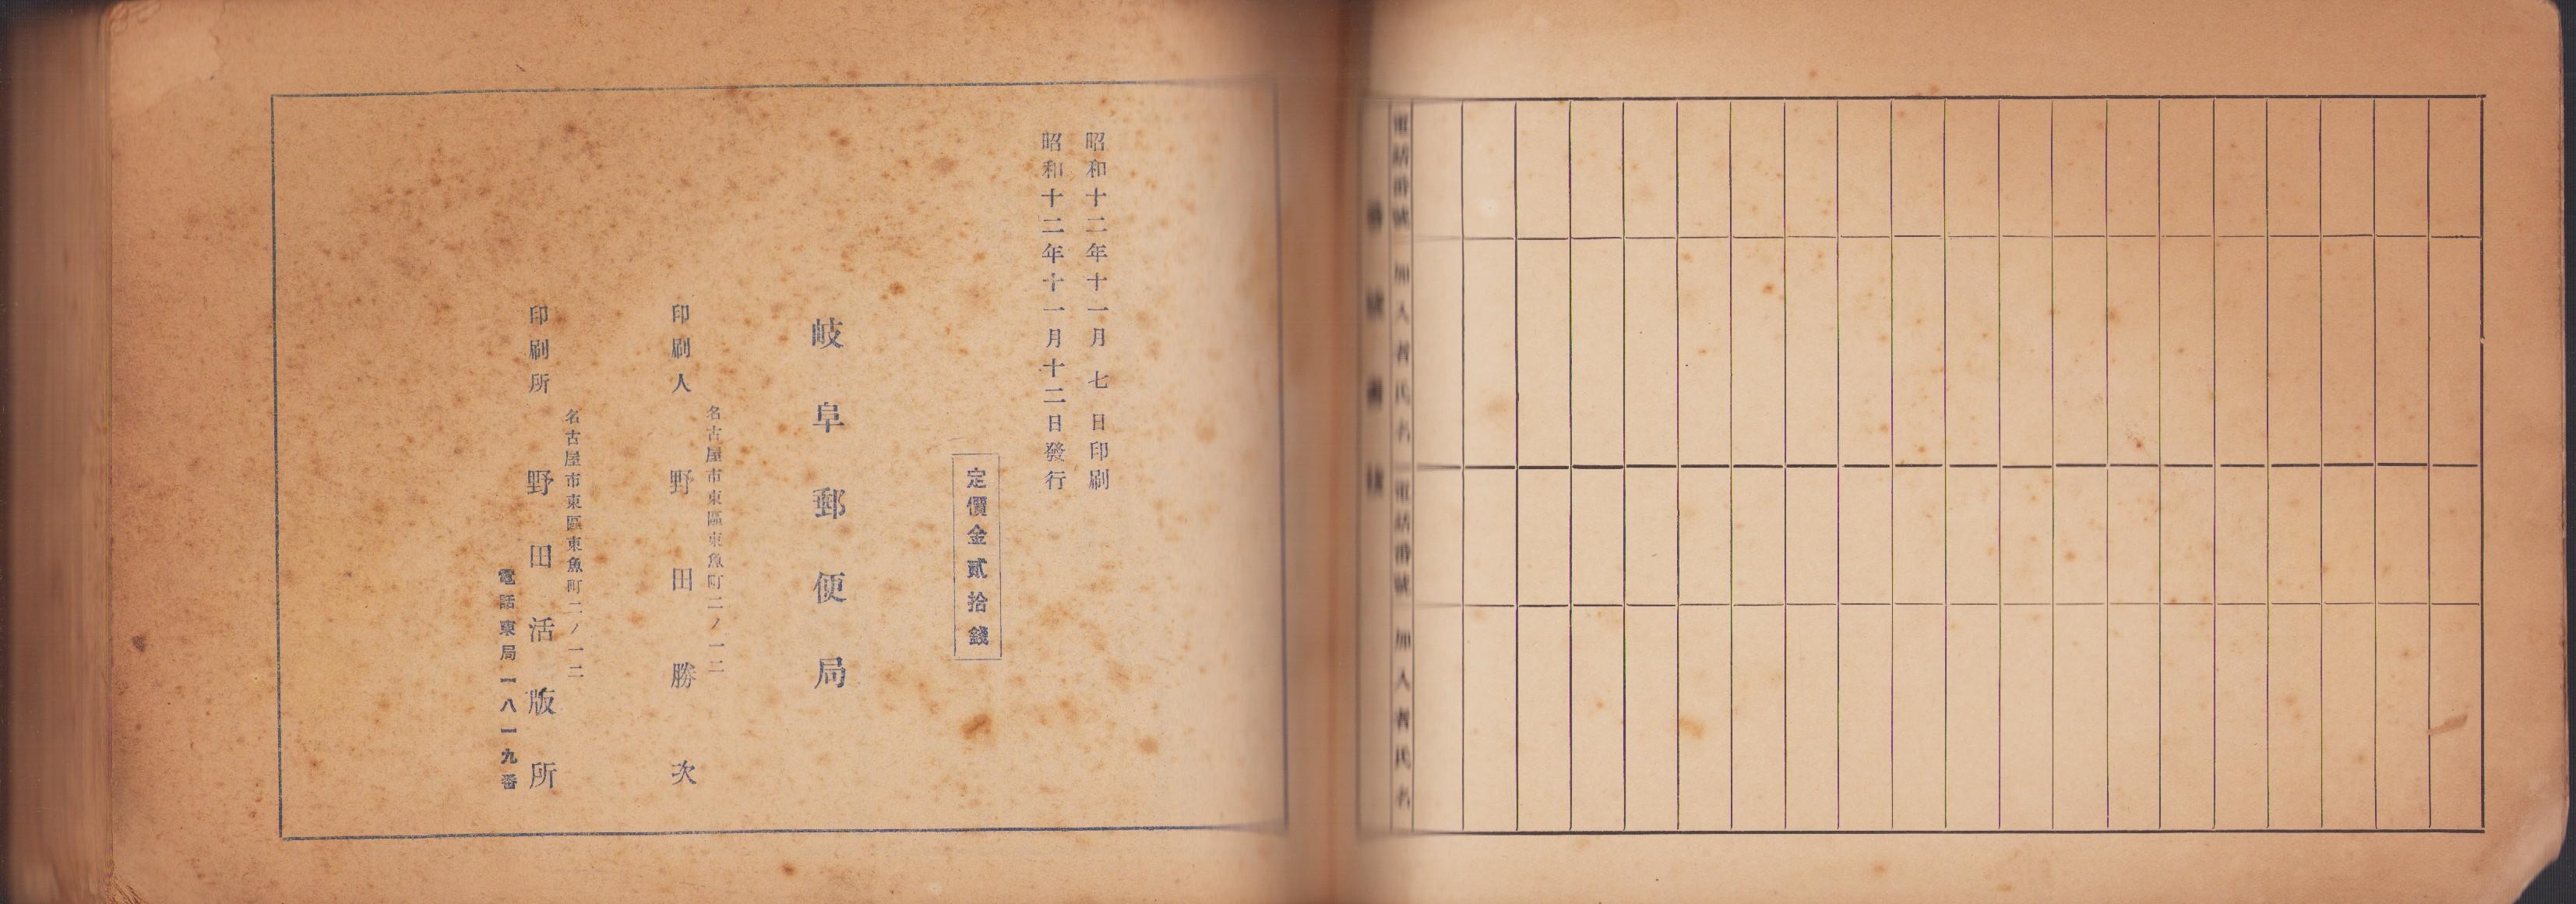 電話番號
加入者氏名
電話番號
加入者氏名
昭和十二年十一月七日印刷
昭和十二年十一月十二日發行
定價金貳拾錢
岐阜郵便局
名古屋市東區東魚町二ノ一二
印刷人 野田勝次
名古屋市東區東魚町二ノ一二
印刷所 野田活版所
電話東局一八一九番